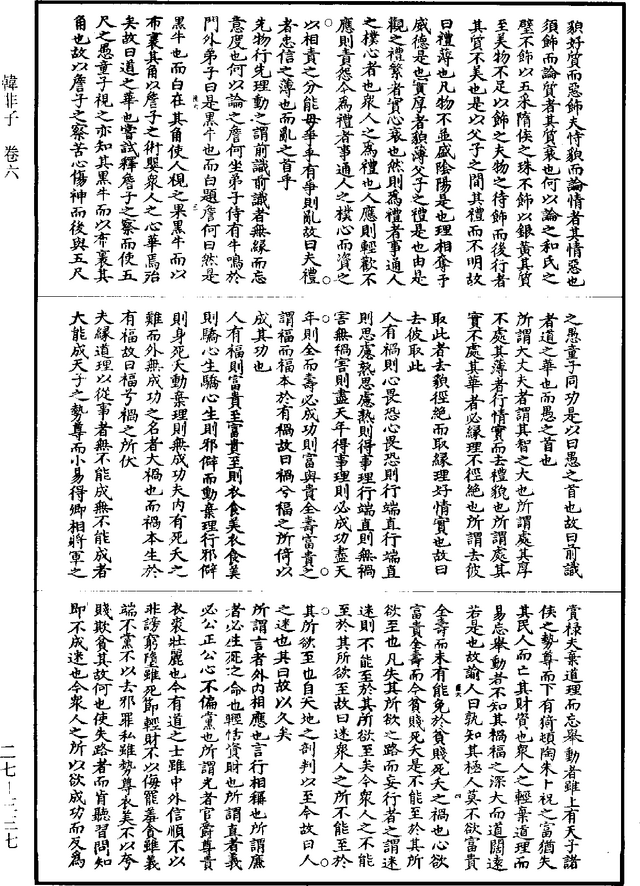 韓非子　卷六
貌好質而惡飾夫恃貌而論情者其情惡也
須飾而論質者其質衰也何以論之和氏之
璧不飾以五采隋侯之珠不飾以銀黃其質
至美物不足以飾之夫物之待飾而後行者
其質不美也是以父子之間其禮而不明故
曰禮薄也凡物不並盛陰陽是也理相奪予
威德是也實厚者貌薄父子之禮是也由是
觀之禮繁者實心衰也然則為禮者事通人
之樸心者也衆人之為禮也人應則輕歡不
應則責怨今為禮者事通人之樸心而資之
以相責之分能毋爭乎有爭則亂故曰夫禮
者忠信之薄也而亂之首乎
先物行先理動之謂前識前識者無緣而忘
意度也何以論之詹何坐弟子侍有牛鳴於
門外弟子曰是黑牛也而白題詹何曰然是
黑牛也而白在其角使人視之果黑牛而以
布裹其角以詹子之術嬰衆人之心華焉殆
矣故曰道之華也嘗試釋詹子之察而使五
尺之愚童子視之亦知其黑牛而以布裹其
角也故以詹子之察苦心傷神而後與五尺
之愚童子同功是以曰愚之首也故曰前識
者道之華也而愚之首也
所謂大丈夫者謂其智之大也所謂處其厚
不處其薄者行情實而去禮貌也所謂處其
實不處其華者必緣理不徑絶也所謂去彼
取此者去貌徑絶而取緣理好情實也故曰
去彼取此
人有禍則心畏恐心畏恐則行端直行端直
則思慮熟思慮熟則得事理行端直則無禍
害無禍害則盡天年得事理則必成功盡天
年則全而壽必成功則富與貴全壽富貴之
謂福而福本於有禍故曰禍兮福之所倚以
成其功也
人有福則富貴至富貴至則衣食美衣食美
則驕心生驕心生則邪僻而動棄理行邪僻
則身死夭動棄理則無成功夫内有死夭之
難而外無成功之名者大禍也而禍本生於
有福故曰福兮禍之所伏
夫緣道理以從事者無不能成無不能成者
大能成天子之勢尊而小易得卿相將軍之
賞祿夫棄道理而忘舉動者雖上有天子諸
侯之勢尊而下有猗頓陶朱卜祝之富猶失
其民人而亡其財資也衆人之輕棄道理而
易忘舉動者不知其禍福之深大而道闊遠
若是也故諭人曰孰知其極人莫不欲富貴
全壽而未有能免於貧賤死夭之禍也心欲
富貴全壽而今貧賤死夭是不能至於其所
欲至也凡失其所欲之路而妄行者之謂迷
迷則不能至於其所欲至矣今衆人之不能
至於其所欲至故曰迷衆人之所不能至於
其所欲至也自天地之剖判以至今故曰人
之迷也其日故以久矣
所謂方者内外相應也言行相稱也所謂廉
者必生死之命也輕恬資財也所謂直者義
必公正公心不偏黨也所謂光者官爵尊貴
衣裘壯麗也今有道之士雖中外信順不以
非謗窮墮雖死節輕財不以侮罷羞貪雖義
端不黨不以去邪罪私雖勢尊衣美不以夸
賤欺貧其故何也使失路者而肯聽習問知
即不成迷也今衆人之所以欲成功而反為
二七—三二七